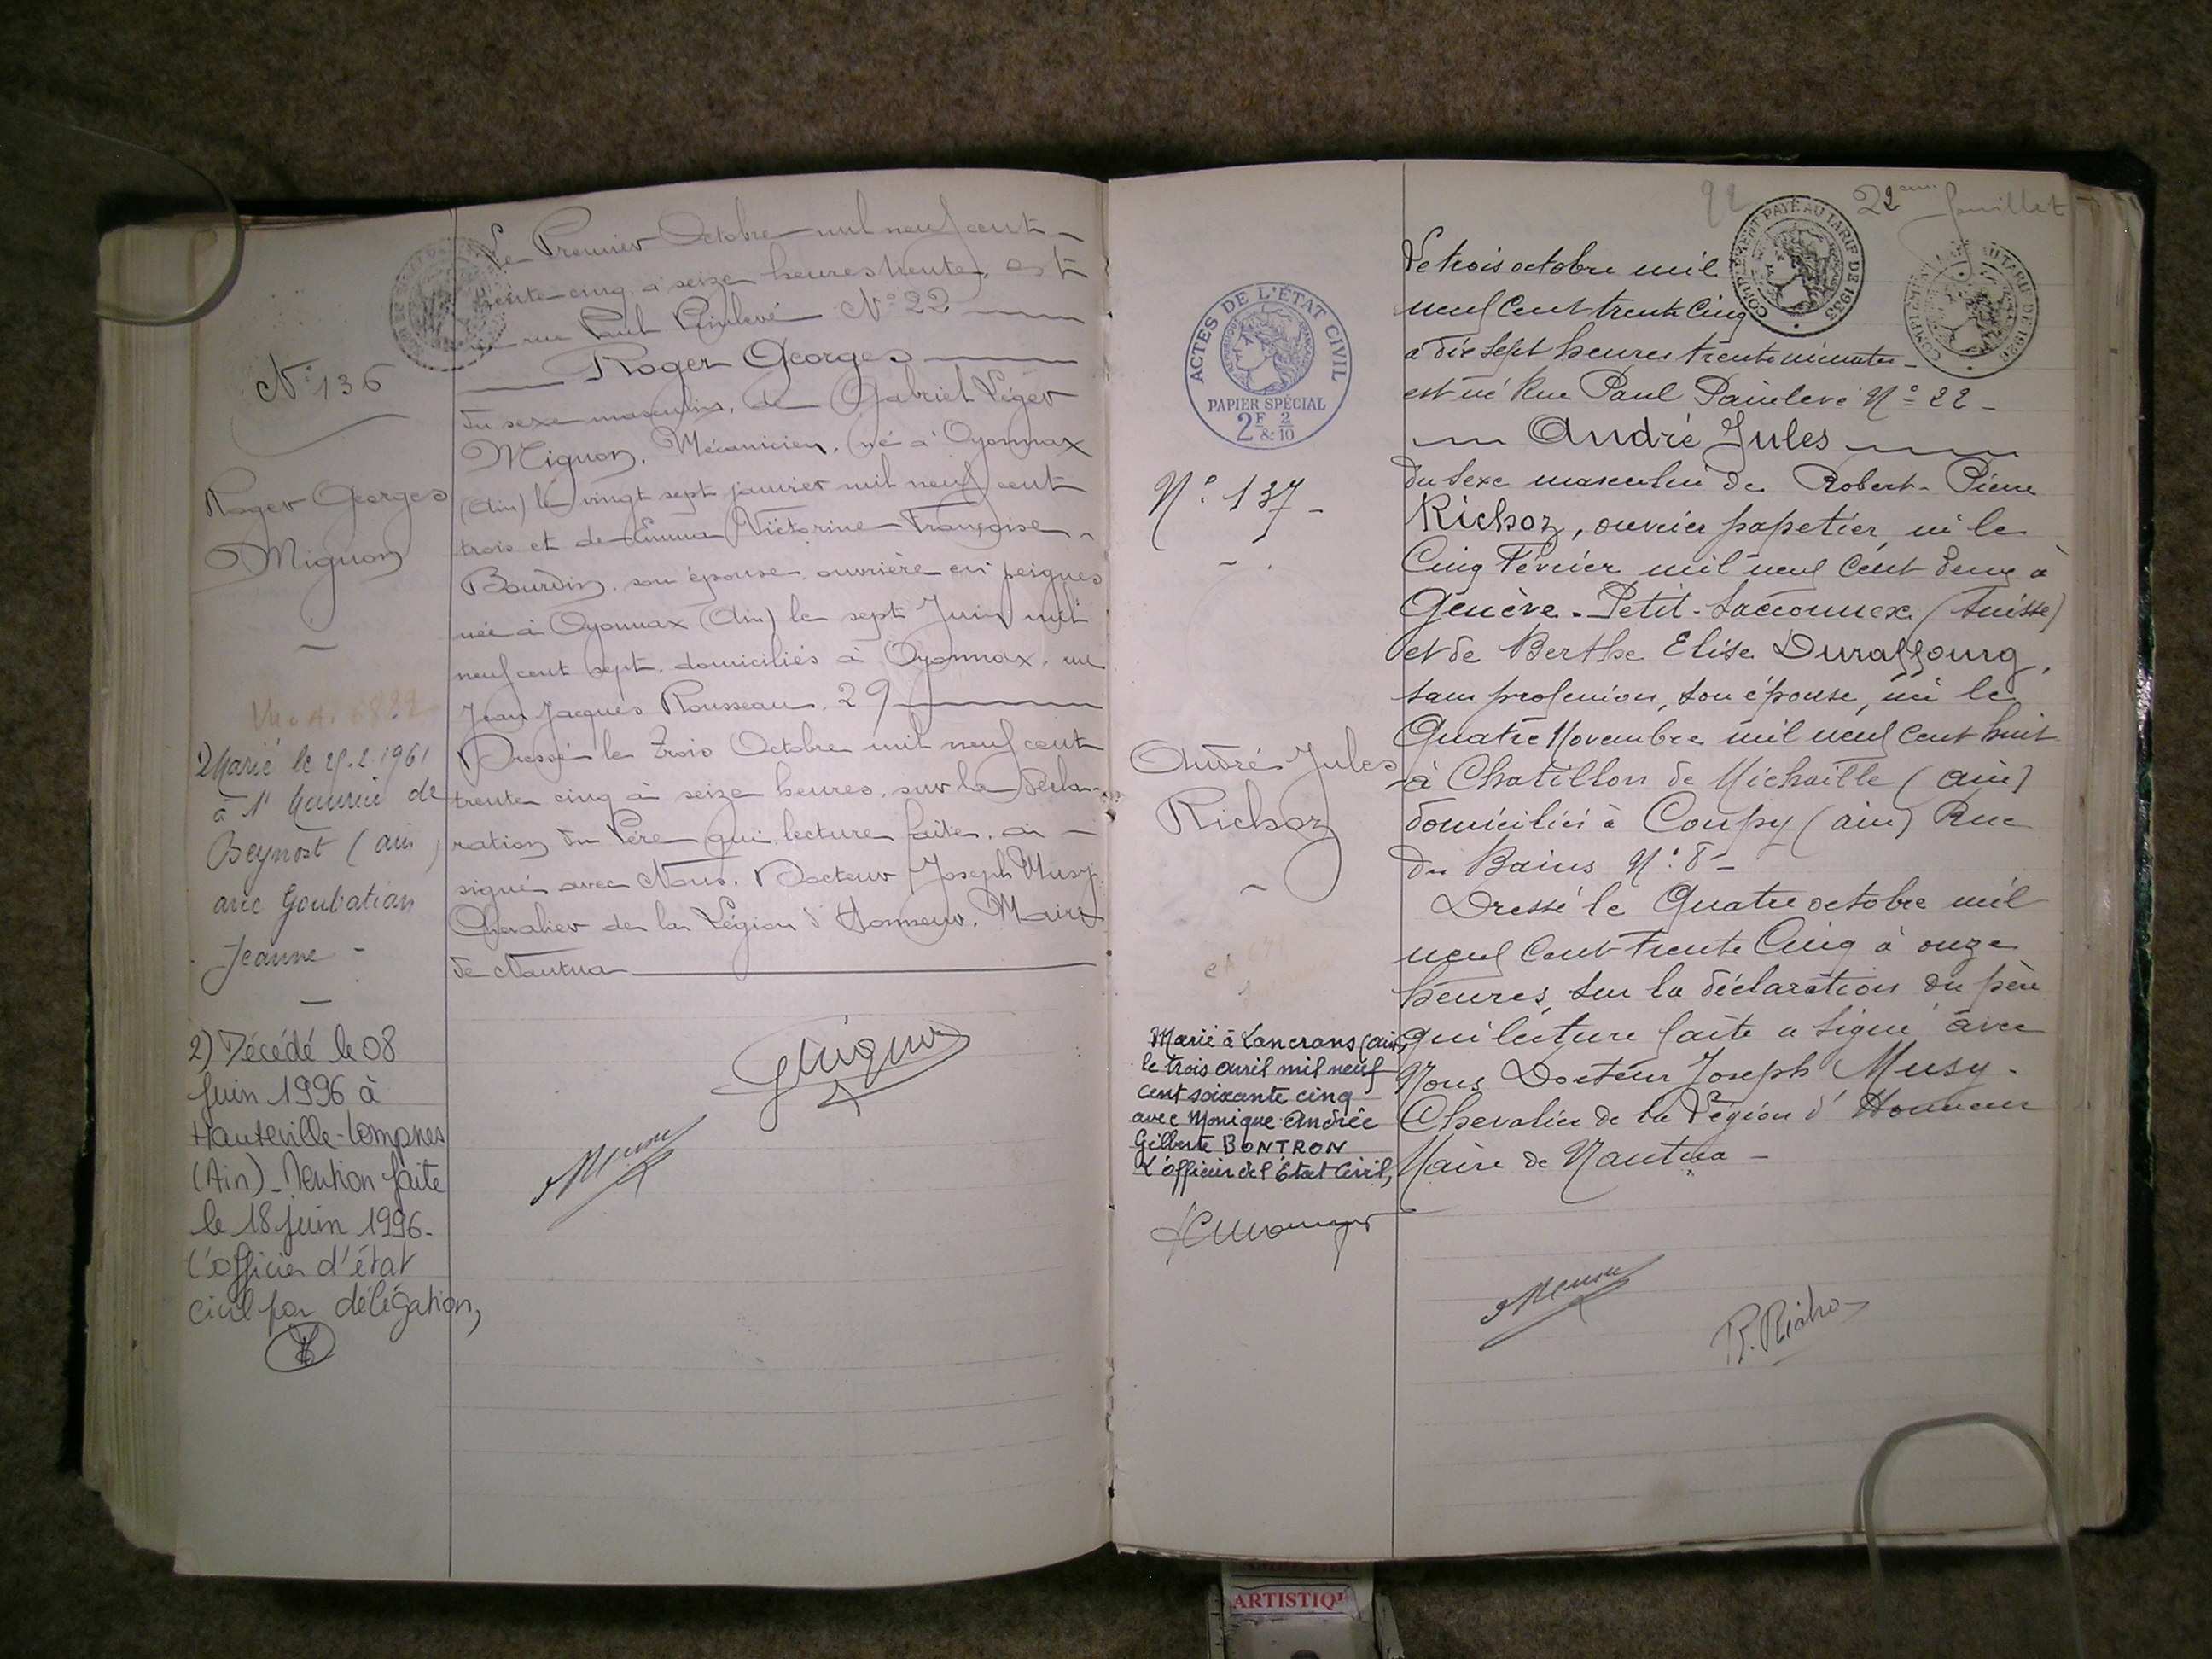 Le Premier Octobre mil neuf cent
trente-cinq à seize heures trente, est
né rue Paul Painlevé N° 22
Roger Georges
du sexe masculin, de Gabriel Léger
Mignon, Mécanicien, né à Oyonnax
(Ain) le vingt sept janvier mil neuf cent
trois et de Emma Victorine Françoise
Bourdin, son épouse, ouvrière en peignes
née à Oyonnax (Ain) le sept Juin mil
neuf cent sept, domiciliés à Oyonnax, rue
Jean Jacques Rousseau, 29
Dressé le Trois Octobre mil neuf cent
trente cinq à seize heures, sur la décla-
ration du Père qui, lecture faite, a
signé avec Nous, Docteur Joseph Musy,
Chevalier de la Légion d'Honneur, Maire
de Nantua
N° 136
Roger Georges
Mignon
1) Marié le 25.2.1961
à St Maurice de
Beynost (ain)
avec Goubatian
Jeanne -
2) Décédé le 08
Juin 1996 à
Hauteville-Lompnes
(Ain) - Mention faite
le 18 juin 1996.
L'officier d'état
civil par délégation,
GMignon
22
22eme feuillet
COMPLEMENT PAYÉ AU TARIF DE 1935
Le trois octobre mil
neuf cent trente cinq
à dix sept heures trente minutes -
est né Rue Paul Painlevé N° 22 -
André Jules
du sexe masculin de Robert-Pierre
Richoz, ouvrier papetier, né le
Cinq Février mil neuf cent deux à
Genève - Petit-Saconnex (Suisse)
et de Berthe Elise Duraffourg,
sans profession, son épouse, née le
Quatre Novembre mil neuf cent huit
à Chatillon de Michaille (ain)
domiciliés à Coupy (ain) Rue
des Bains N° 8 -
Dressé le Quatre octobre mil
neuf cent trente Cinq à onze
heures, sur la déclaration du père
qui lecture faite a signé avec
Nous Docteur Joseph Musy -
Chevalier de la Légion d'Honneur
Maire de Nantua -
R. Richoz
ACTES DE L'ÉTAT CIVIL
PAPIER SPÉCIAL
2F & 2/10
N° 137 -
André Jules
Richoz
Marié à Lancrans (ain)
le trois avril mil neuf
cent soixante cinq
avec Monique Andrée
Gilberte BONTRON
L'officier de l'Etat Civil,
ARTISTIQ